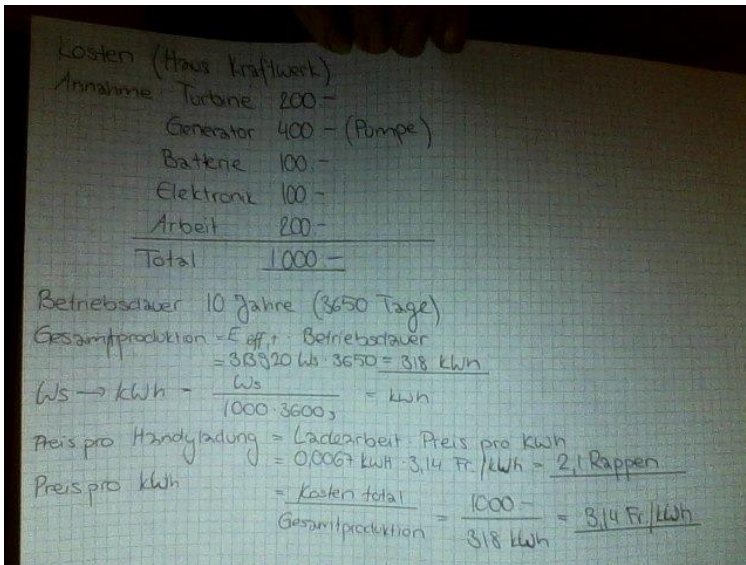 Kosten (Haus Kraftwerk)
Annahme Turbine 200.-
Generator 400 - (Pumpe)
Batterie 100.-
Elektronik 100.-
Arbeit 200.-
Total 1000.-
Betriebsdauer 10 Jahre (3650 Tage)
Gesamtproduktion = E eff,t · Betriebsdauer
= 313920 Ws · 3650 = 318 kWh
Ws → kWh = Ws / 1000·3600s = kWh
Preis pro Handyladung = Ladearbeit · Preis pro kWh
= 0,0067 kWH · 3,14 Fr./kWh = 2,1 Rappen
Preis pro kWh = Kosten total / Gesamtproduktion = 1000.- / 318 kWh = 3,14 Fr/kWh